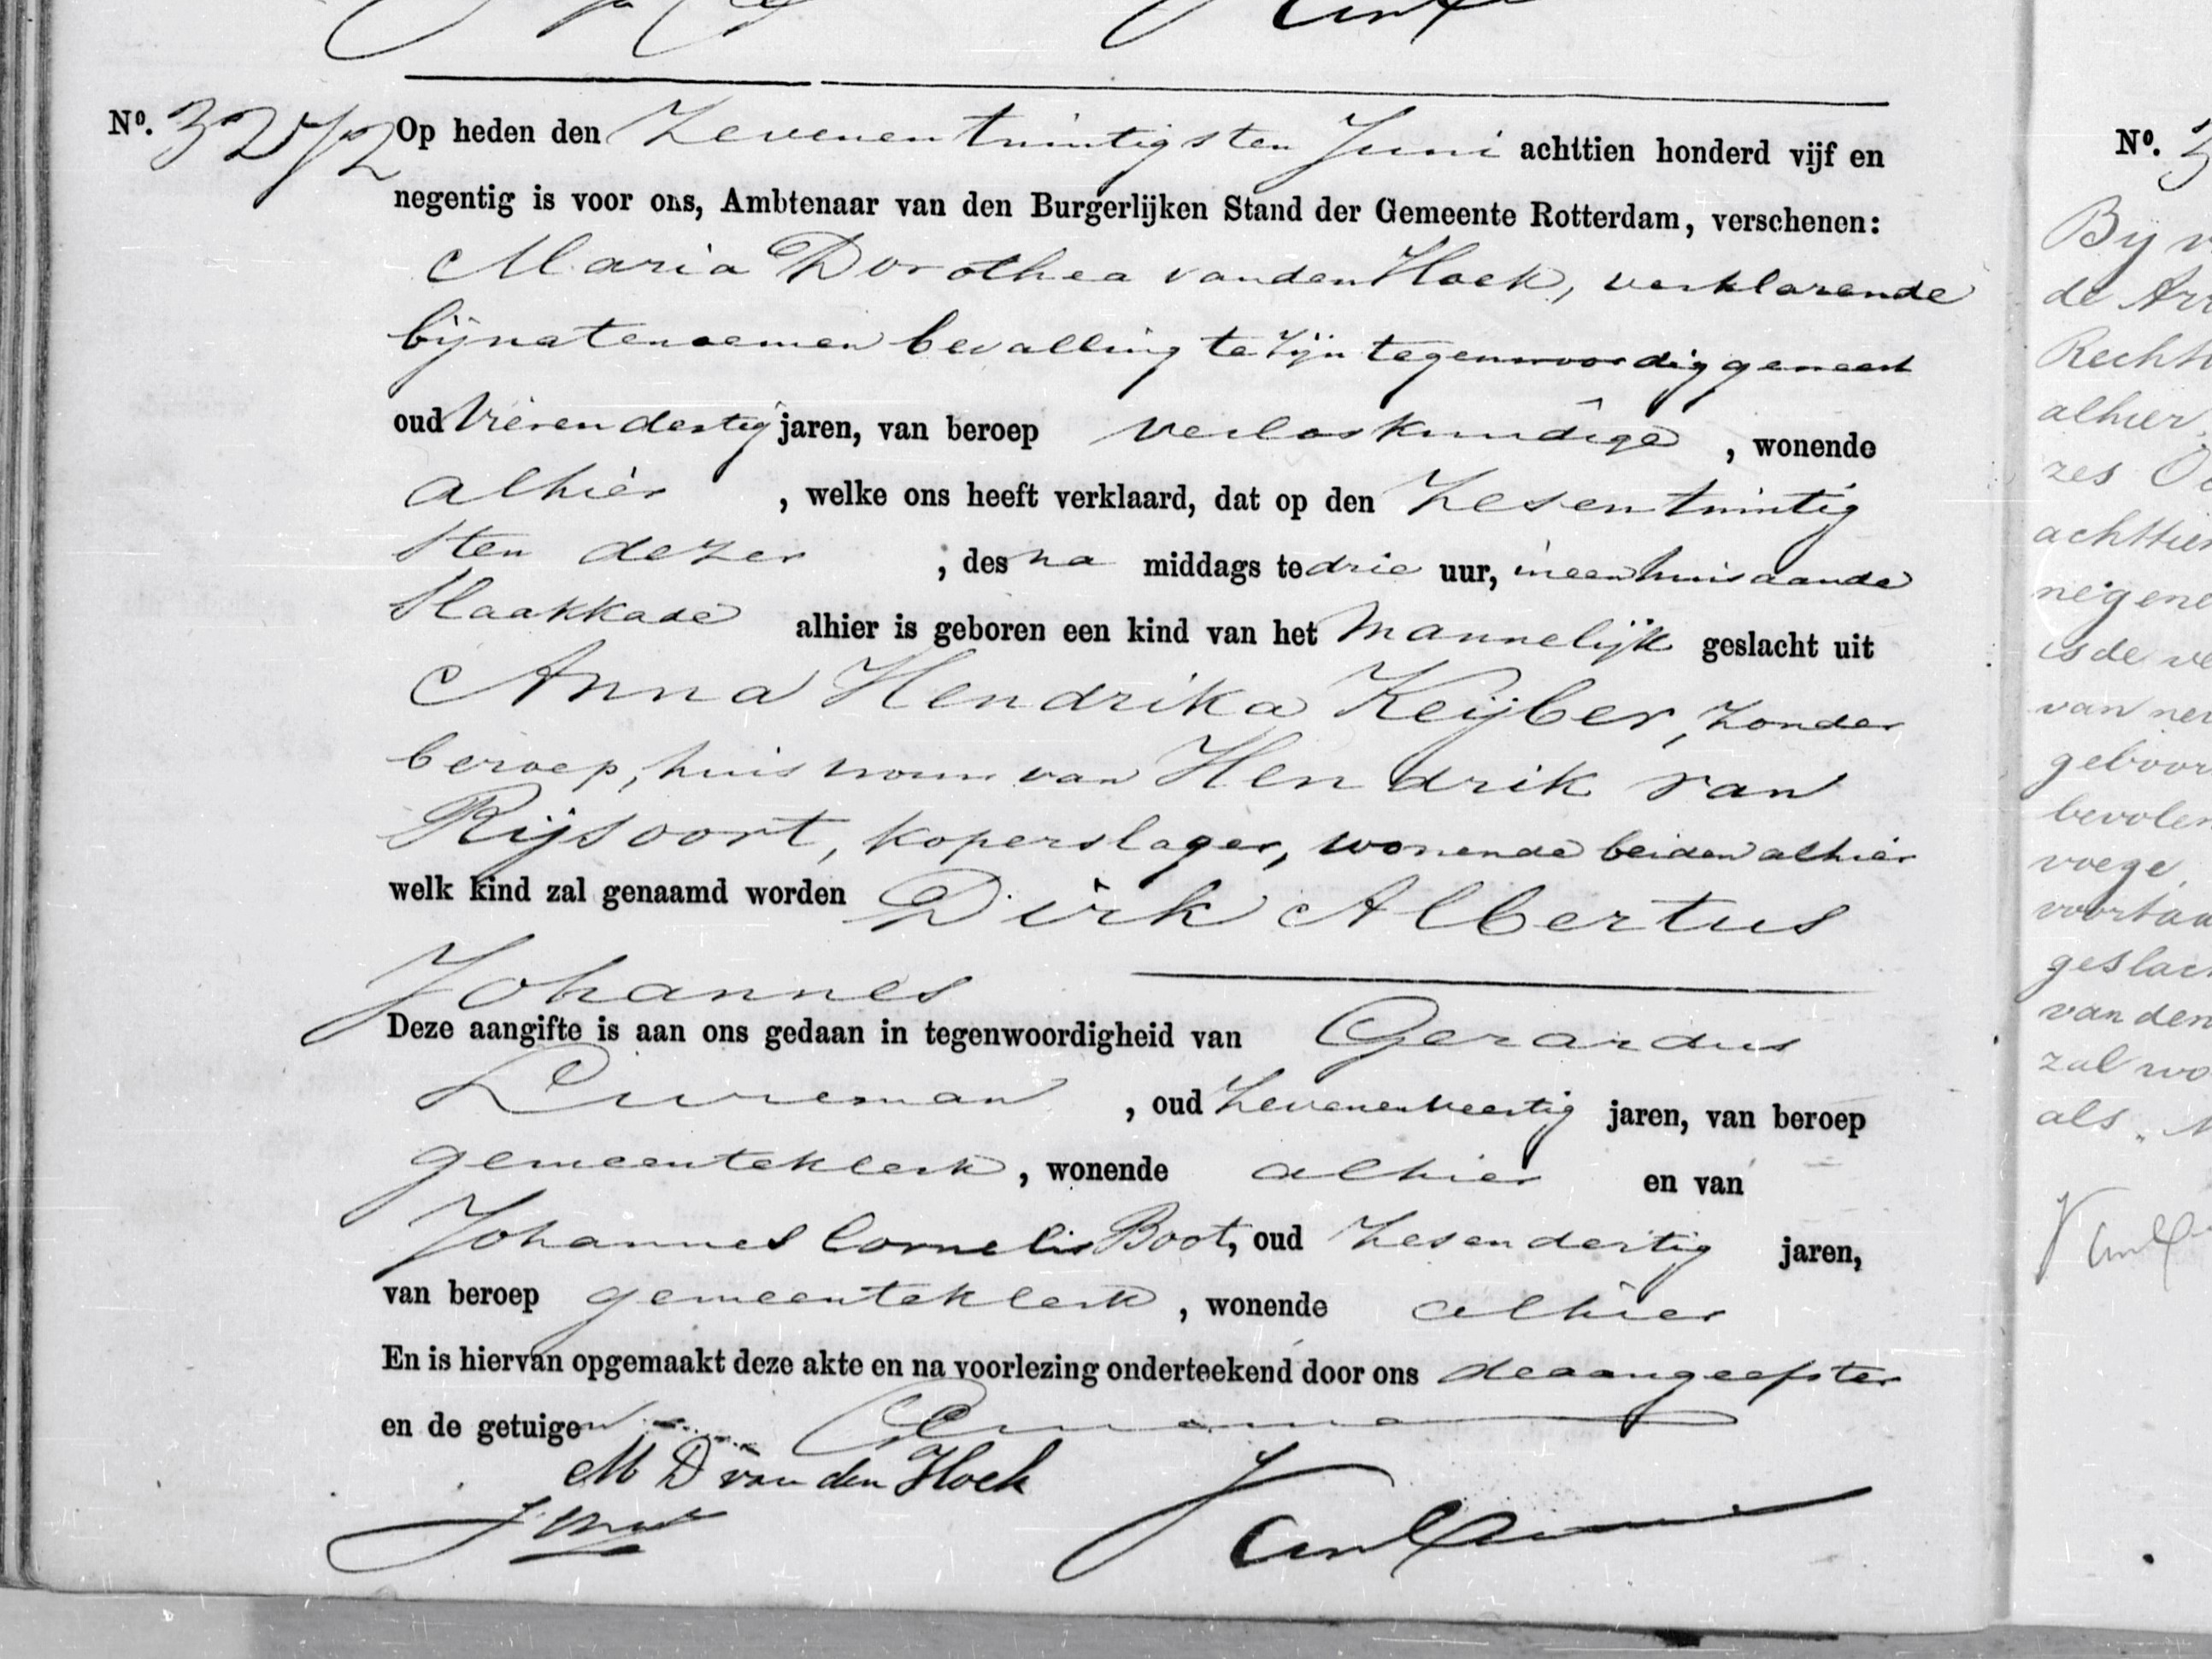 Nº. 3272 Op heden den Zevenentwintigsten Juni achttien honderd vijf en
negentig is voor ons, Ambtenaar van den Burgerlijken Stand der Gemeente Rotterdam, verschenen:
Maria Dorothea van den Hoek, verklarende
bij na te noemen bevalling te zijn tegenwoordig geweest
oud Vierendertig jaren, van beroep verloskundige, wonende
alhier, welke ons heeft verklaard, dat op den Zesentwintig
sten dezer, des na middags te drie uur, in een huis aan de
Slaakkade alhier is geboren een kind van het Mannelijk geslacht uit
Anna Hendrika Keijber, zonder
beroep, huisvrouw van Hendrik van
Rijsoort, koperslager, wonende beiden alhier
welk kind zal genaamd worden Dirk Albertus
Johannes
Deze aangifte is aan ons gedaan in tegenwoordigheid van Gerardus
, oud Zevenenveertig jaren, van beroep
gemeenteklerk, wonende alhier en van
Johannes Cornelis Boot, oud Zesendertig jaren,
van beroep gemeenteklerk, wonende alhier
En is hiervan opgemaakt deze akte en na voorlezing onderteekend door ons de aangeefster
en de getuigen
M D van den Hoek
Nº. 3
By
de
Recht
alhier
zes
achttien
negen
is de
van
geboor
bevolen
voege
voortaa
geslac
van den
zal wo
als